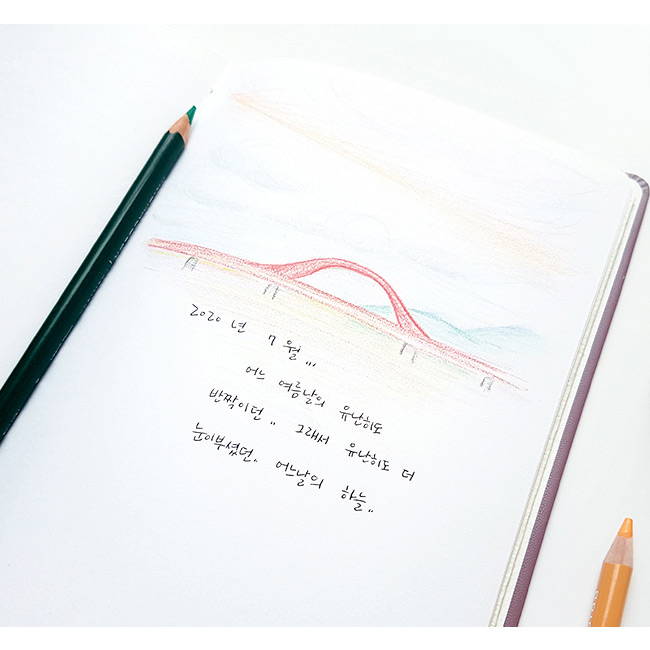 2020년 7월,,,
어느 여름날의 유난히도
반짝이던.. 그래서 유난히도 더
눈이부셨던.. 어느날의 하늘..